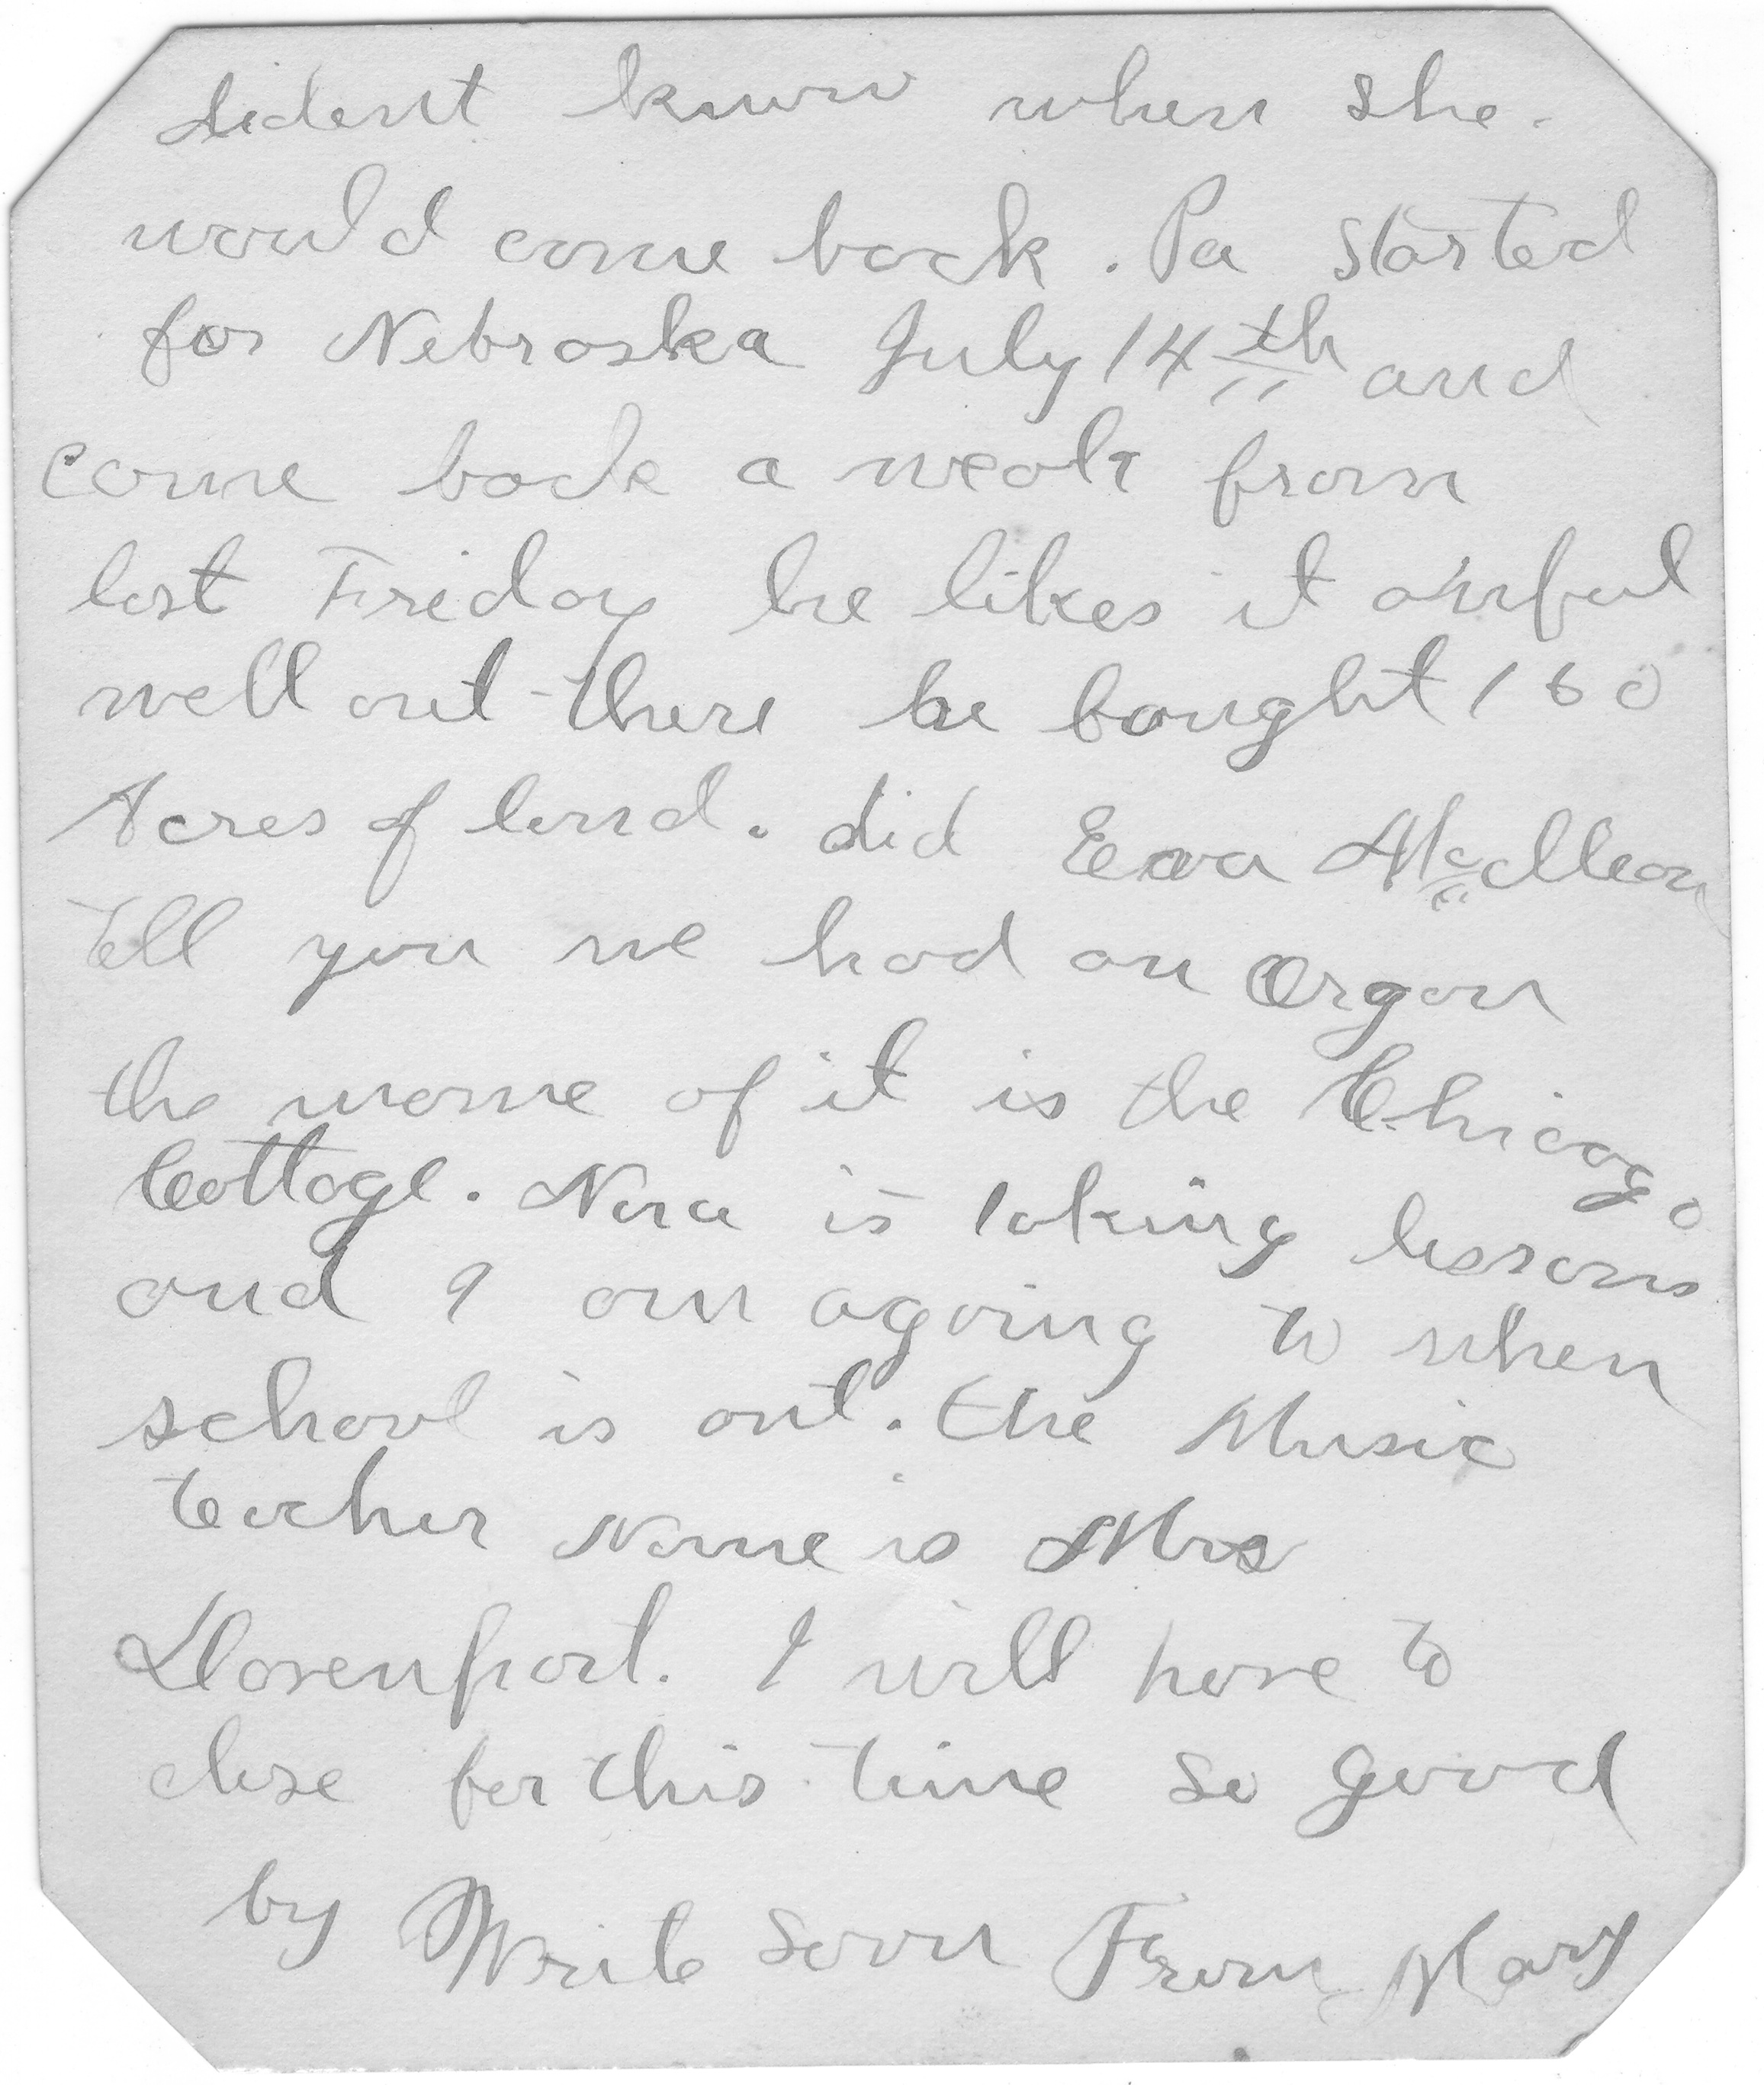 dident know when she.
would come back. Pa started
for Nebraska July 14th and
come back a weak from
last Friday he likes it awful
well out there he bought 160
Acres of land. did Eava
tell you we had an Organ
the name of it is the Chicago
Cottage. Nora is taking lessons
and I am agoing to when
school is out. the Music
teacher Name is Mrs
Davenport. I will have to
close for this time so good
by Write soon From Mary